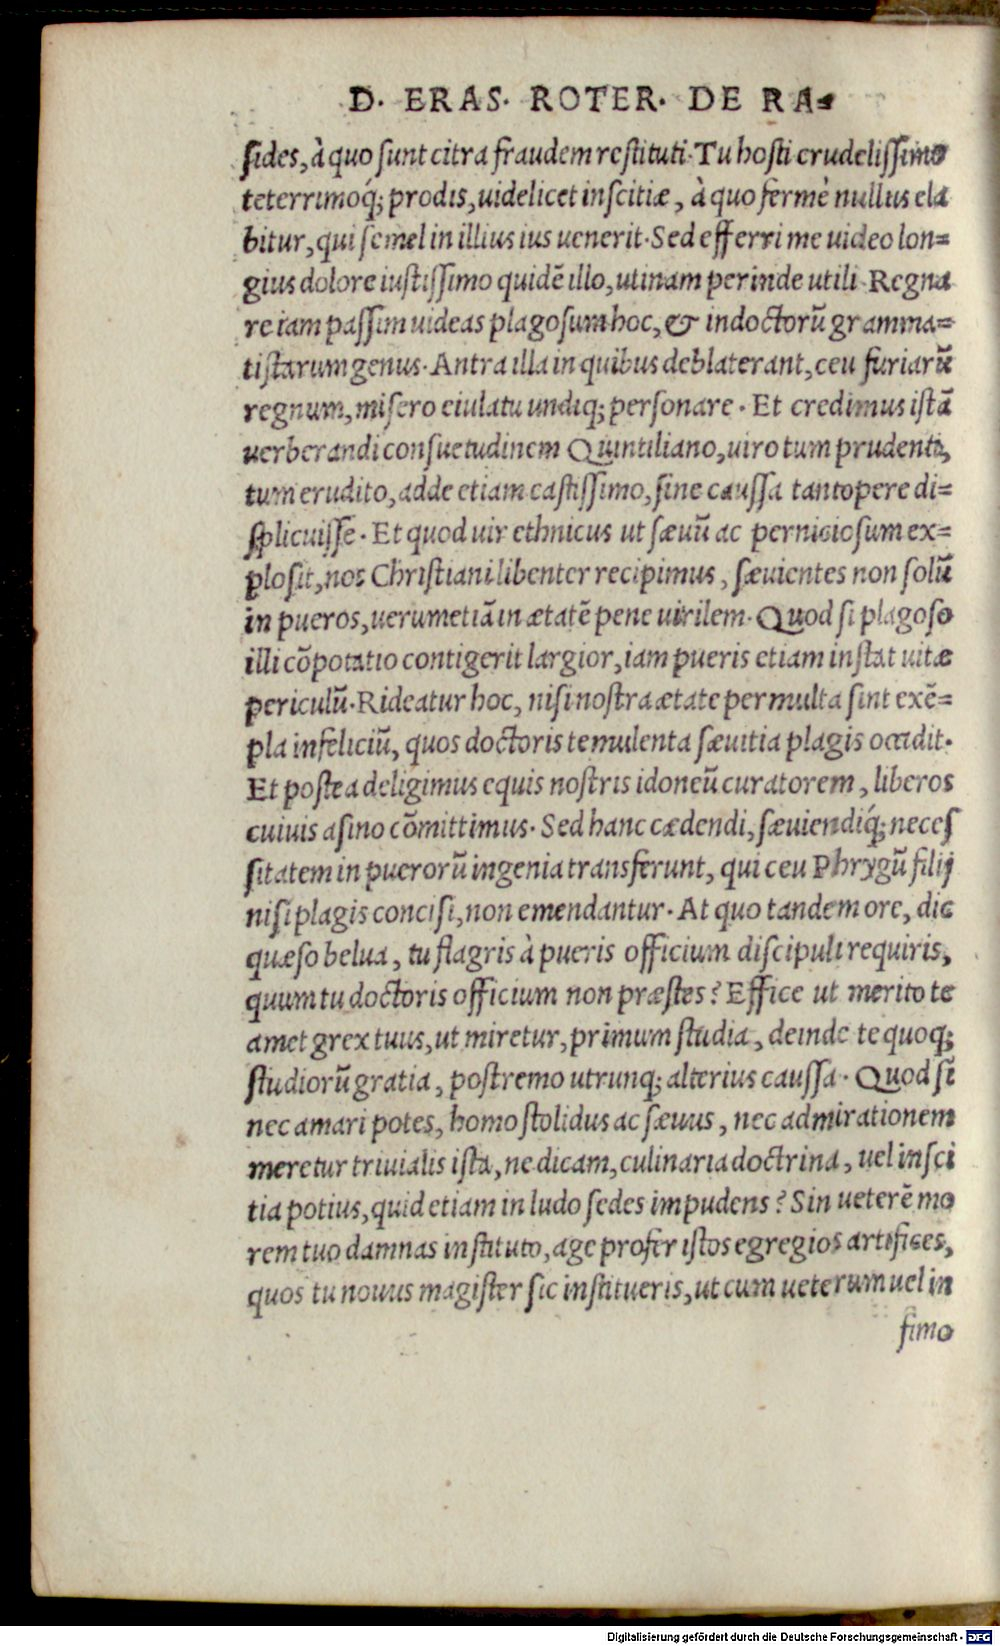 D. ERAS. ROTER. DE RA-
sides, à quo sunt citra fraudem restituti. Tu hosti crudelissimo
teterrimoq́; prodis, uidelicet inscitiæ, à quo fermè nullus ela
bitur, qui semel in illius ius uenerit. Sed efferri me uideo lon=
gius dolore iustissimo quidē illo, utinam perinde utili. Regna
re iam passim uideas plagosum hoc, & indoctorū gramma=
tistarum genus. Antra illa in quibus deblaterant, ceu furiarū
regnum, misero eiulatu undiq; personare. Et credimus istā
uerberandi consuetudinem Quintiliano, uiro tum prudenti,
tum erudito, adde etiam castissimo, sine caussa tantopere di=
splicuisse. Et quod uir ethnicus ut sæuū ac perniciosum ex=
plosit, nos Christiani libenter recipimus, sæuientes non solū
in pueros, uerumetiā in ætatē pene uirilem. Quod si plagoso
illi cōpotatio contigerit largior, iam pueris etiam instat uitæ
periculū. Rideatur hoc, nisi nostra ætate permulta sint exē=
pla infeliciū, quos doctoris temulenta sæuitia plagis occidit.
Et postea deligimus equis nostris idoneū curatorem, liberos
cuiuis asino cōmittimus. Sed hanc cædendi, sæuiendiq́; neces
sitatem in puerorū ingenia transferunt, qui ceu Phrygū filij
nisi plagis concisi, non emendantur. At quo tandem ore, dic
quæso belua, tu flagris à pueris officium discipuli requiris,
quum tu doctoris officium non præstes? Effice ut merito te
amet grex tuus, ut miretur, primum studia, deinde te quoq;
studiorū gratia, postremo utrunq; alterius caussa. Quod si
nec amari potes, homo stolidus ac sæuus, nec admirationem
meretur triuialis ista, ne dicam, culinaria doctrina, uel insci
tia potius, quid etiam in ludo sedes impudens? Sin ueterē mo
rem tuo damnas instituto, age profer istos egregios artifices,
quos tu nouus magister sic institueris, ut cum ueterum uel in
fimo
Digitalisierung gefördert durch die Deutsche Forschungsgemeinschaft - DFG